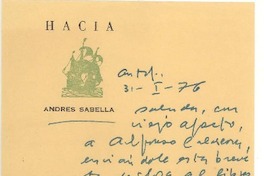 HACIA
ANDRES SABELLA
Antof.
31-I-76
saluda, con
viejo afecto,
a Alfonso Calderón,
enviándole esta breve